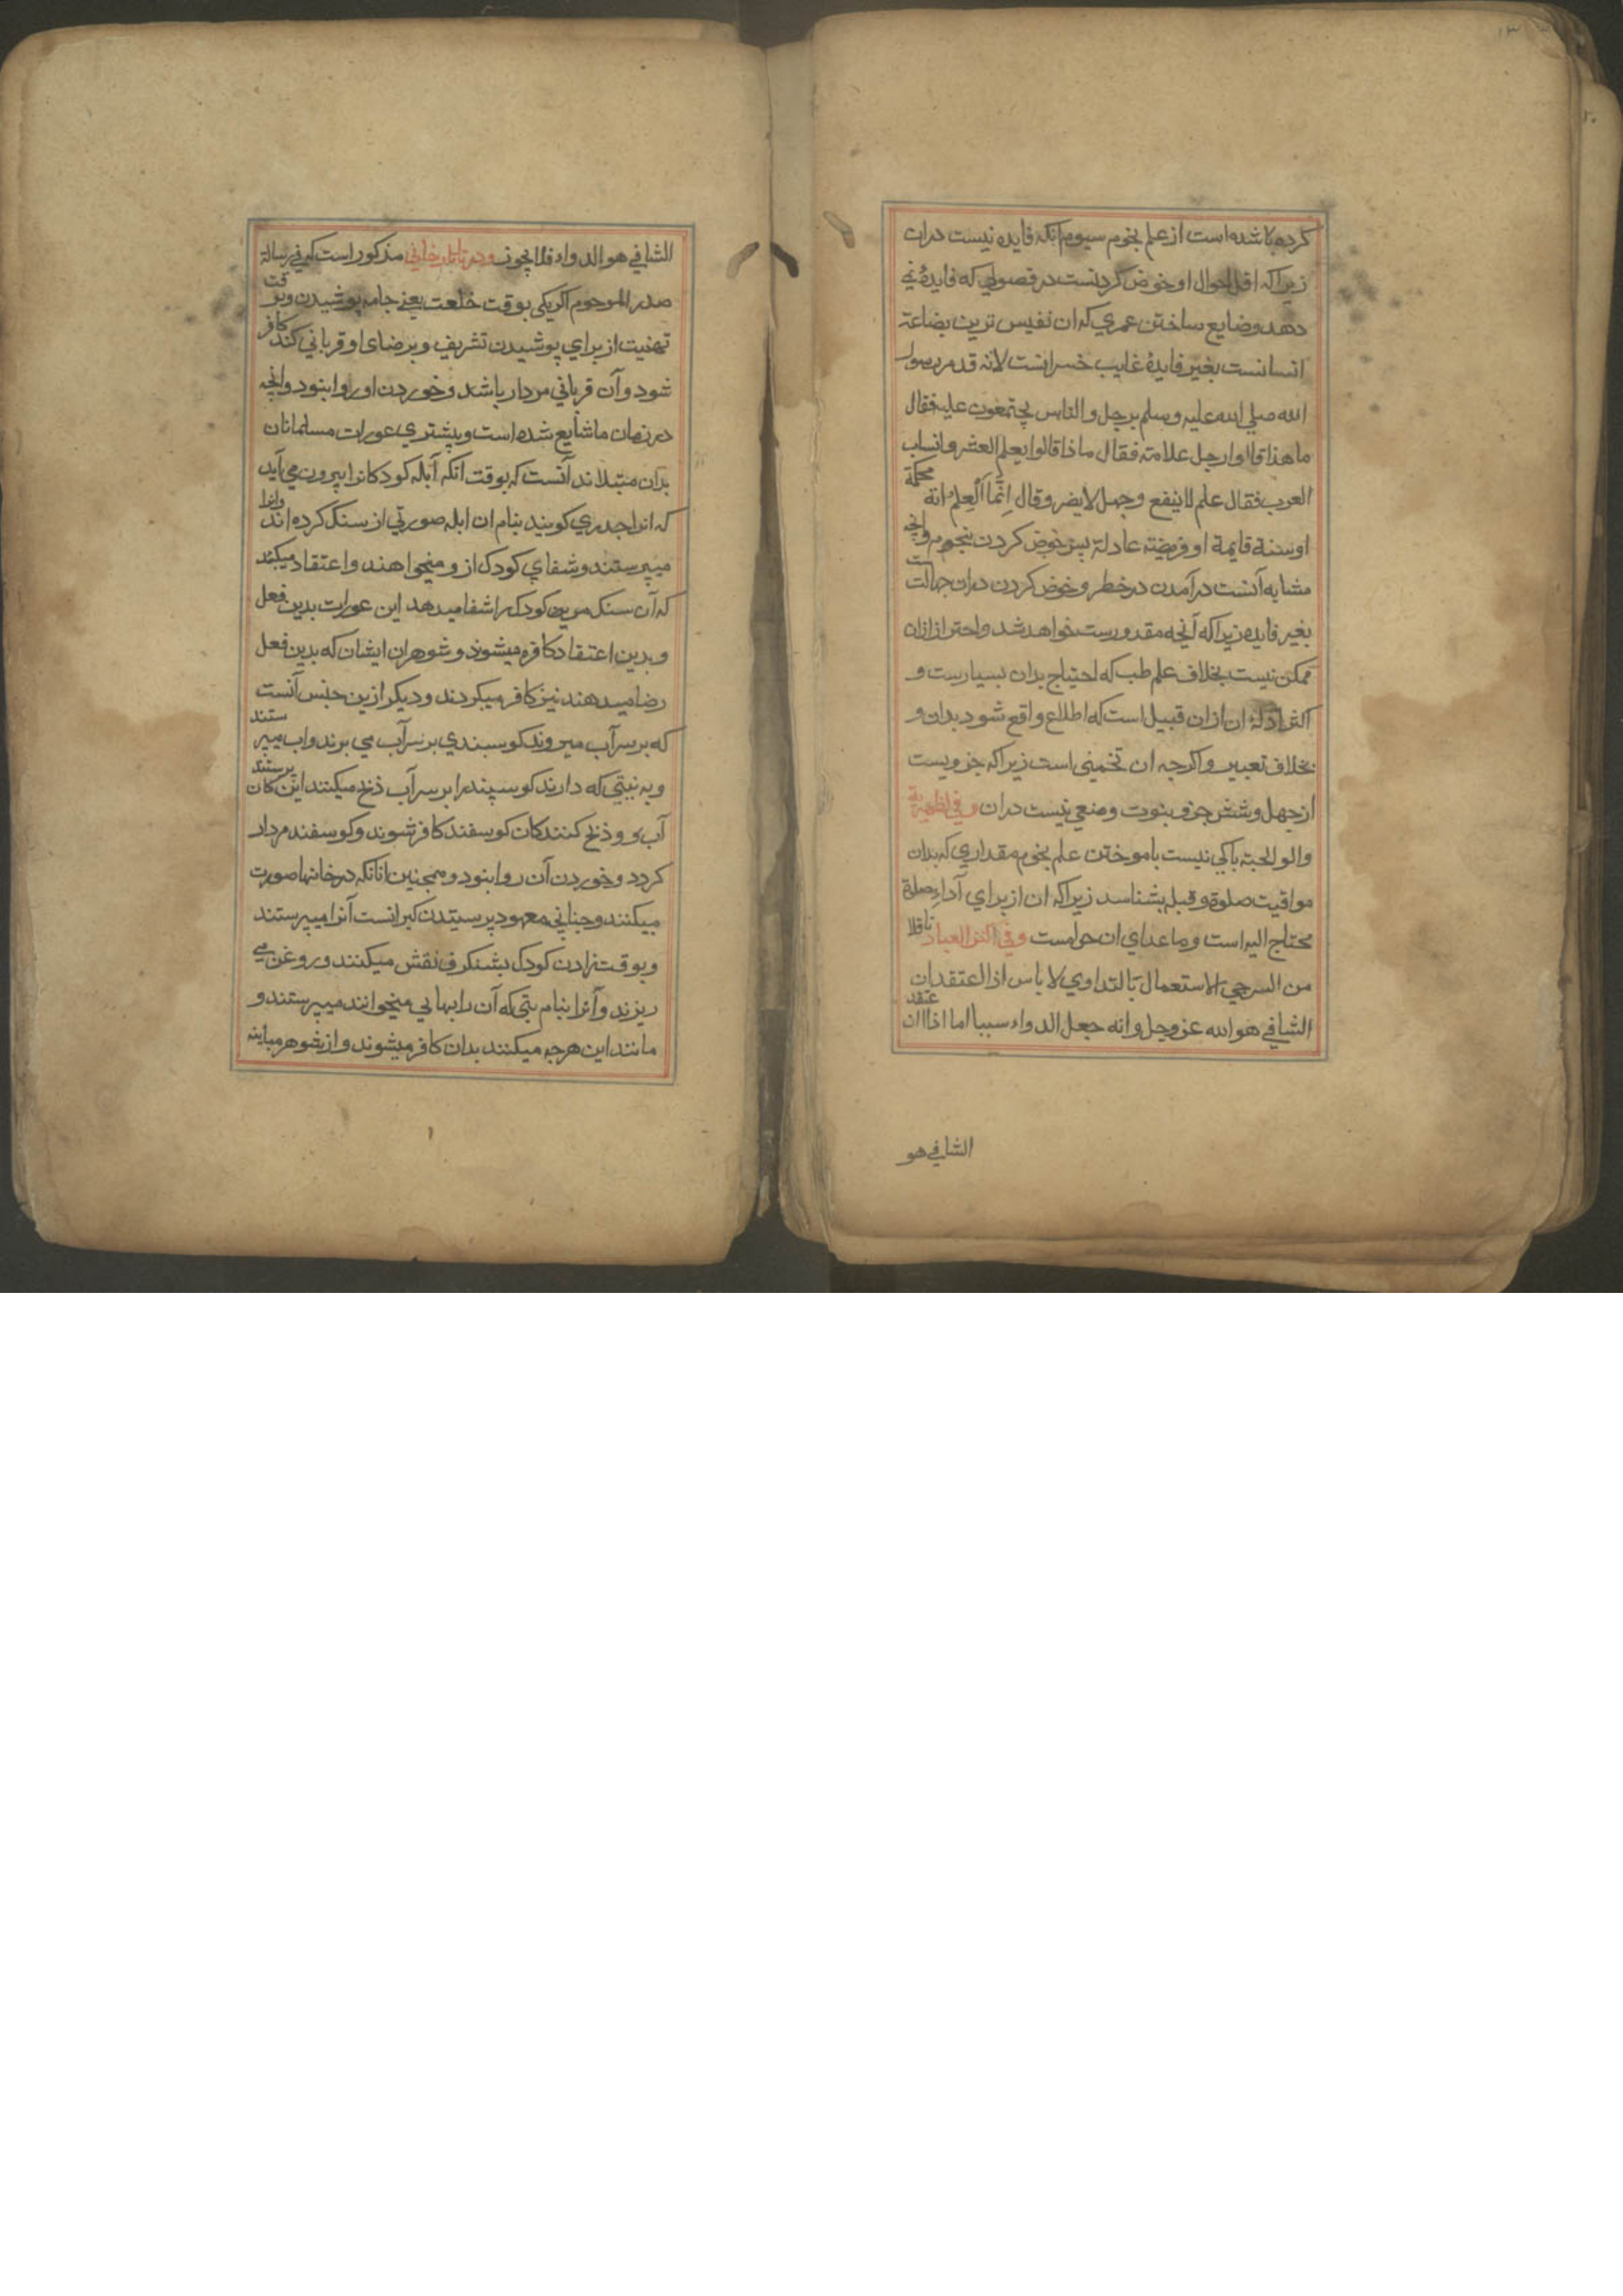 ١٣
كرده باشده است از علم نجوم سيوم انكه فايده نيست دران
زيرا كه اقل احوال او خوض كردنست در فصولي كه فايدۀ نمي
دهد و ضايع ساختن عمري كه ان نفيس ترين بضاعة
انسانست بغير فايدۀ غايب خسرانست لانه قد مر رسول
الله صلي الله عليه وسلم برجل والناس يجتمعون عليه فقال
ما هذا قالوا رجل علامة فقال ماذا قالوا يعلم الشعر وانساب
العرب فقال علم لا ينفع وجهل لا يضر وقال اِنَّما اَلعِلمُ اية محكمة
او سنة قايمة او فريضة عادلة پس خوض كردن نجوم وانچه
مشابه آنست در آمدن در خطر و خوض كردن دران جهالت ست
بغير فايده زيرا كه آنچه مقدورست نخواهد شد و احتراز ازان
ممكن نيست بخلاف علم طب كه احتياج بدان بسيارست و
اكثر ادلۀ ان ازان قبيل است كه اطلاع واقع شود بدان و
بخلاف تعبير و اكرچه ان تخميني است زيرا كه جزويست
از چهل و شش جزو نبوت و منعي نيست دران و في الظهيرية
والولجية باكي نيست باموختن علم نجوم مقداري كه بدان
مواقيت صلوة و قبله بشناسد زيرا كه ان از براي آداء صلوة
محتاج اليه است و ما عداي ان حرامست و في كنز العباد ناقلا
من السرجي الاستعمال بالتداوي لا باس اذا العتقد ان
الشافي هو الله عز وجل وانه جعل الدواء سببا اما اذا اعتقد ان
الشافي هو
الشافي هو الدواء فلا يجوز و در تاتارخاني مذكور است كه في رسالة
صدر المرحوم اكر يكي بوقت خلعت يعني جامه پوشيدن و بوقت
تهنيت از براي پوشيدن تشريف و برضاي او قرباني كند كافر
شود و آن قرباني مردار باشد و خوردن او روا بنود وانچه
در زمان ما شايع شده است و بيشتري عورات مسلمانان
بدان مبتلا اند آنست كه بوقت انكه آبله كودكانرا بيرون مي آيد
كه انرا جدري كويند بنام ان ابله صورتي از سنك كرده اند وانرا
ميپرستند و شفاي كودك ازو ميخواهند و اعتقاد ميكنند
كه آن سنك مرين كودك را شفا ميدهد اين عورات بدين فعل
و بدين اعتقاد كافره ميشوند و شوهران ايشان كه بدين فعل
رضا ميدهند نيز كافر ميكردند و ديكر ازين جنس آنست
كه بر سر آب ميروند كوسبندي بر سر آب مي برند و اب ميپر ستند
و به نيتي كه دارند كوسپند را بر سر آب ذبح ميكنند اين پرستند كان
آب و ذبح كنندكان كوسفند كافر شوند و كوسفند مردار
كردد و خوردن آن روا بنود و همچنين انانكه در خانها صورت
ميكنند و چناني معهود پرستيدن كبرانست آنرا ميپرستند
و بوقت زادن كودك بشنكرف نقش ميكنند و روغن مي
ريزند و آنرا بنام بتي كه آن را بهاني ميخوانند ميپرستند و
مانند اين هرچه ميكنند بدان كافر ميشوند و از شوهر مباينه